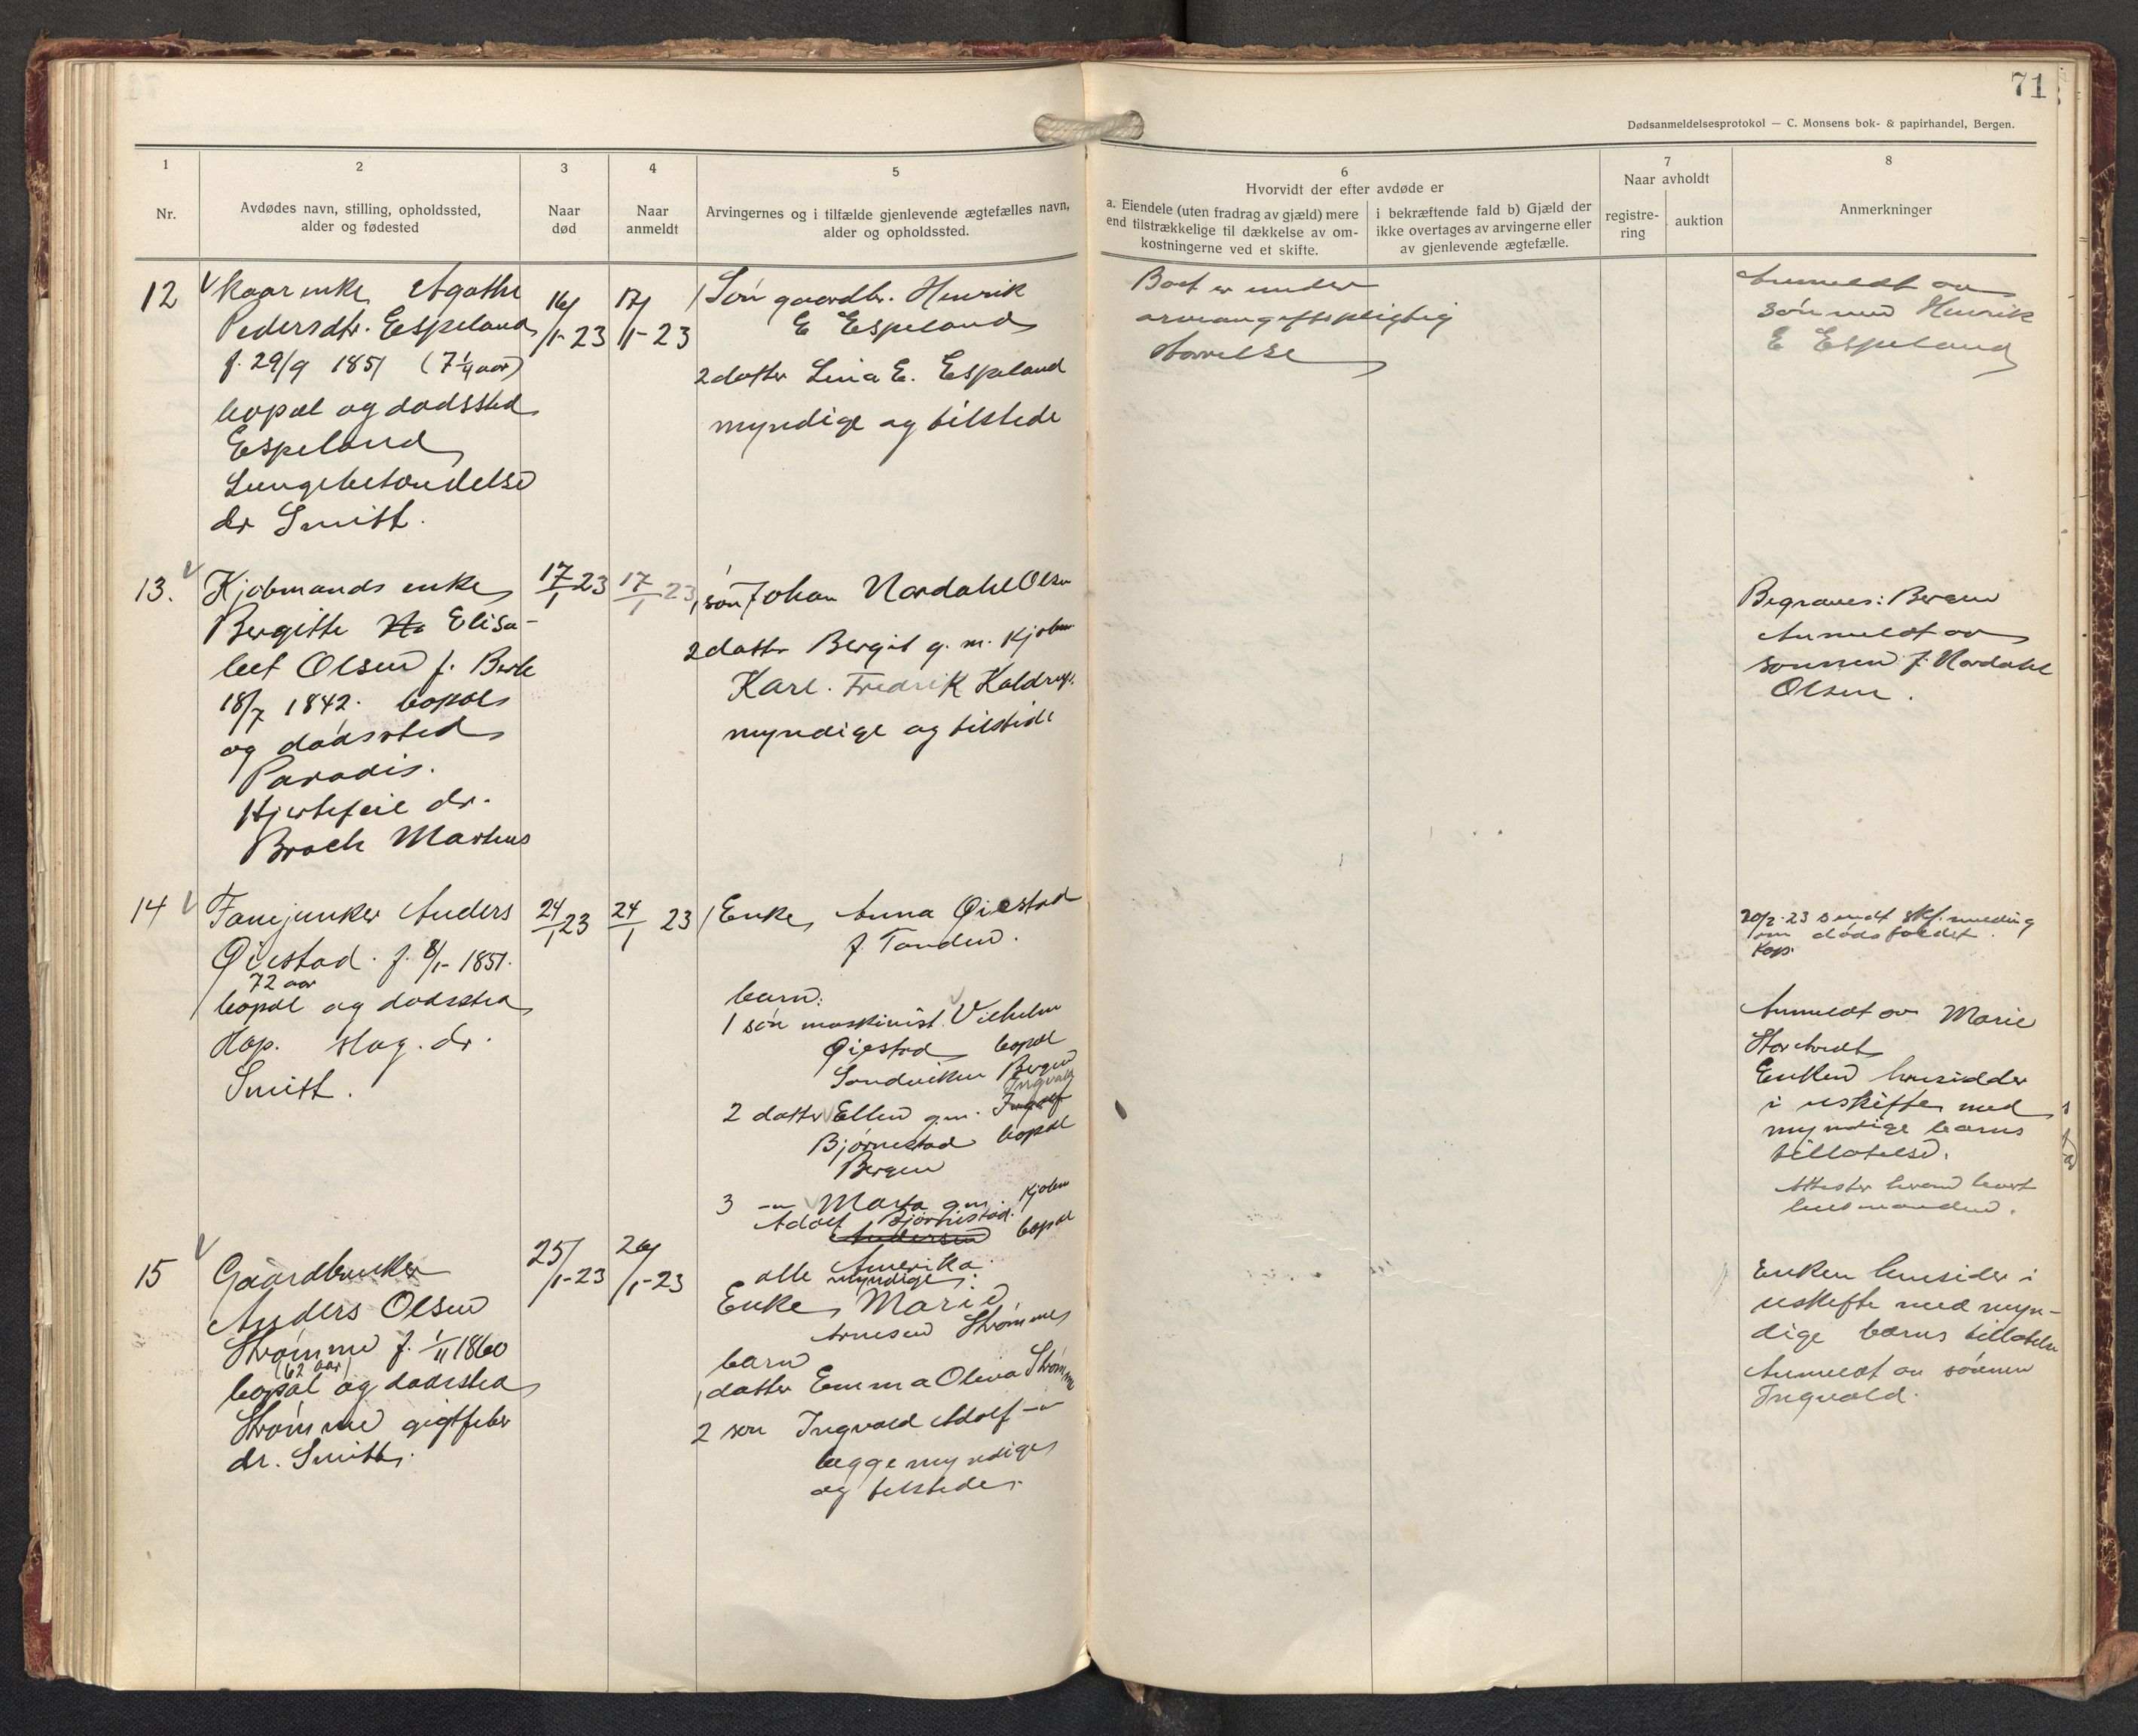 71
Dødsanmeldelsesprotokol — C. Monsens bok- & papirhandel, Bergen.
1
Nr.
2
Avdødes navn, stilling, opholdssted,
alder og fødested
3
Naar
død
4
Naar
anmeldt
5
Arvingernes og i tilfælde gjenlevende ægtefælles navn,
alder og opholdssted.
6
Hvorvidt der efter avdøde er
a. Eiendele (uten fradrag av gjæld) mere
end tilstrækkelige til dækkelse av om-
kostningerne ved et skifte.
i bekræftende fald b) Gjæld der
ikke overtages av arvingerne eller
av gjenlevende ægtefælle.
7
Naar avholdt
registre-
ring
auktion
8
Anmerkninger
12
Kaarenke Agathe
Pedersdtr. Espeland
f. 29/9 1851 (71 1/4 aar)
bopæl og dødssted
Espeland
Lungebetændelse
dr Smitt.
16/1-23
17/1-23
1 Søn gaardbr. Henrik
E Espeland
2 datter Lina E. Espeland
myndige og tilstede
Boet er under
arveavgiftspligtig
størrelse
Anmeldt av
sønnen Henrik
E Espeland
13.
Kjøbmands enke
Bergitte Elisa-
bet Olsen f. Berle
18/7 1842. bopæl
og dødssted
Paradis.
Hjertefeil dr.
Broch Martens
17/1 23
17/1 23
1 søn Johan Nordahl Olsen
2 datter Bergit g. m. Kjøbm
Karl. Fredrik
myndige og tilstede
Begraves: Bergen
Anmeldt av
sønnen J. Nordahl
Olsen.
14
Fanejunker Anders
Øiestad. f. 8/1- 1851.
72 aar
bopæl og dødssted
Hop. slag. dr.
Smitt.
24/1 23
24/1 23
1 Enke, Anna Øiestad
f. Tonden.
barn:
1 søn maskinist. Vilhelm
Øiestad bopæl
Sandviken Bergen
Ingvald
2 datter Ellen gm. Ingolf
Bjørnestad bopæl
Bergen
3 -"- Marta gm. Kjøbm
Adolf Bjørnestad.
Andersen bopæl
Amerika.
alle myndige.
20/2-23 sendt skf. melding
om dødsfaldet.
Kop.
Anmeldt av Marie
Storetvedt
Enken hensidder
i uskifte med
myndige barns
tillatelse.
15
Gaardbruker
Anders Olsen
Strømme f. 1/11 1860
(62 aar)
bopæl og dødssted
Strømme gigtfeber
dr. Smitt.
25/1-23
26/1-23
Enke, Marie
Arnesen Strømme
barn
1 datter Emma Oliva Strømme
2 søn Ingvald Adolf -"-
begge myndige
og tilstede.
Enken hensider i
uskifte med myn-
dige barns tillatelse
Anmeldt av sønnen
Ingvald.